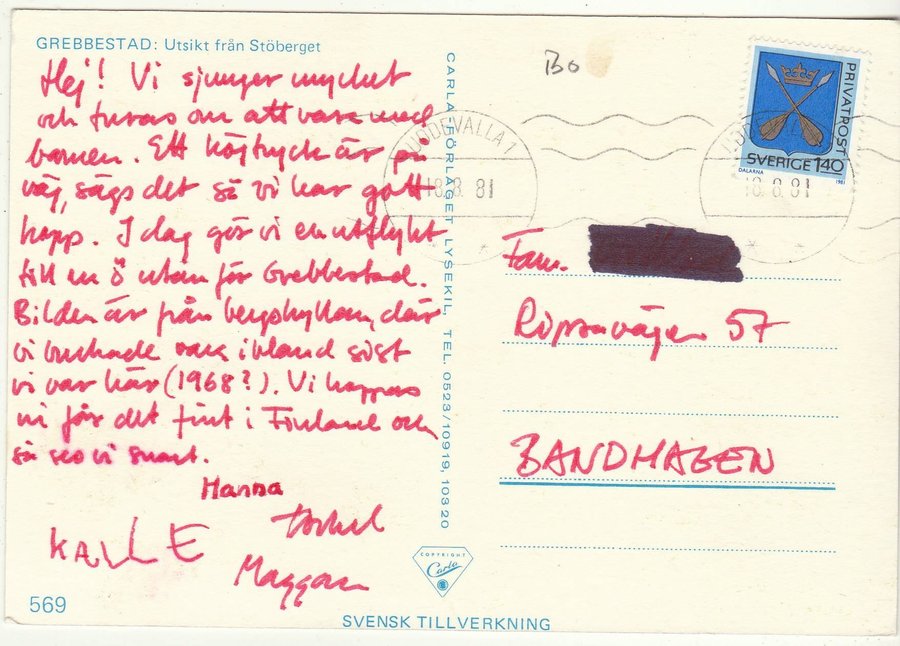 GREBBESTAD: Utsikt från Stöberget
Hej! Vi sjunger mycket
och turas om att vara med
barnen. Ett högtryck är på
väg, sägs det så vi har gott
hopp. I dag gör vi en utflykt
till en ö utan för Grebbestad.
Bilden är från bergshyllan, där
vi brukade vara ibland sist
vi var här (1968?). Vi hoppas
ni får det fint i Finland och
så ses vi snart.
Hanna
KALLE
Torkel
Maggan
569
CARLA-FÖRLAGET LYSEKIL, TEL. 0523/10919, 10320
COPYRIGHT
Carla
SVENSK TILLVERKNING
Bo
PRIVATPOST
SVERIGE 140
DALARNA
1981
UDDEVALLA 1
18.8.81
18.8.81
Fam.
57
BANDHAGEN